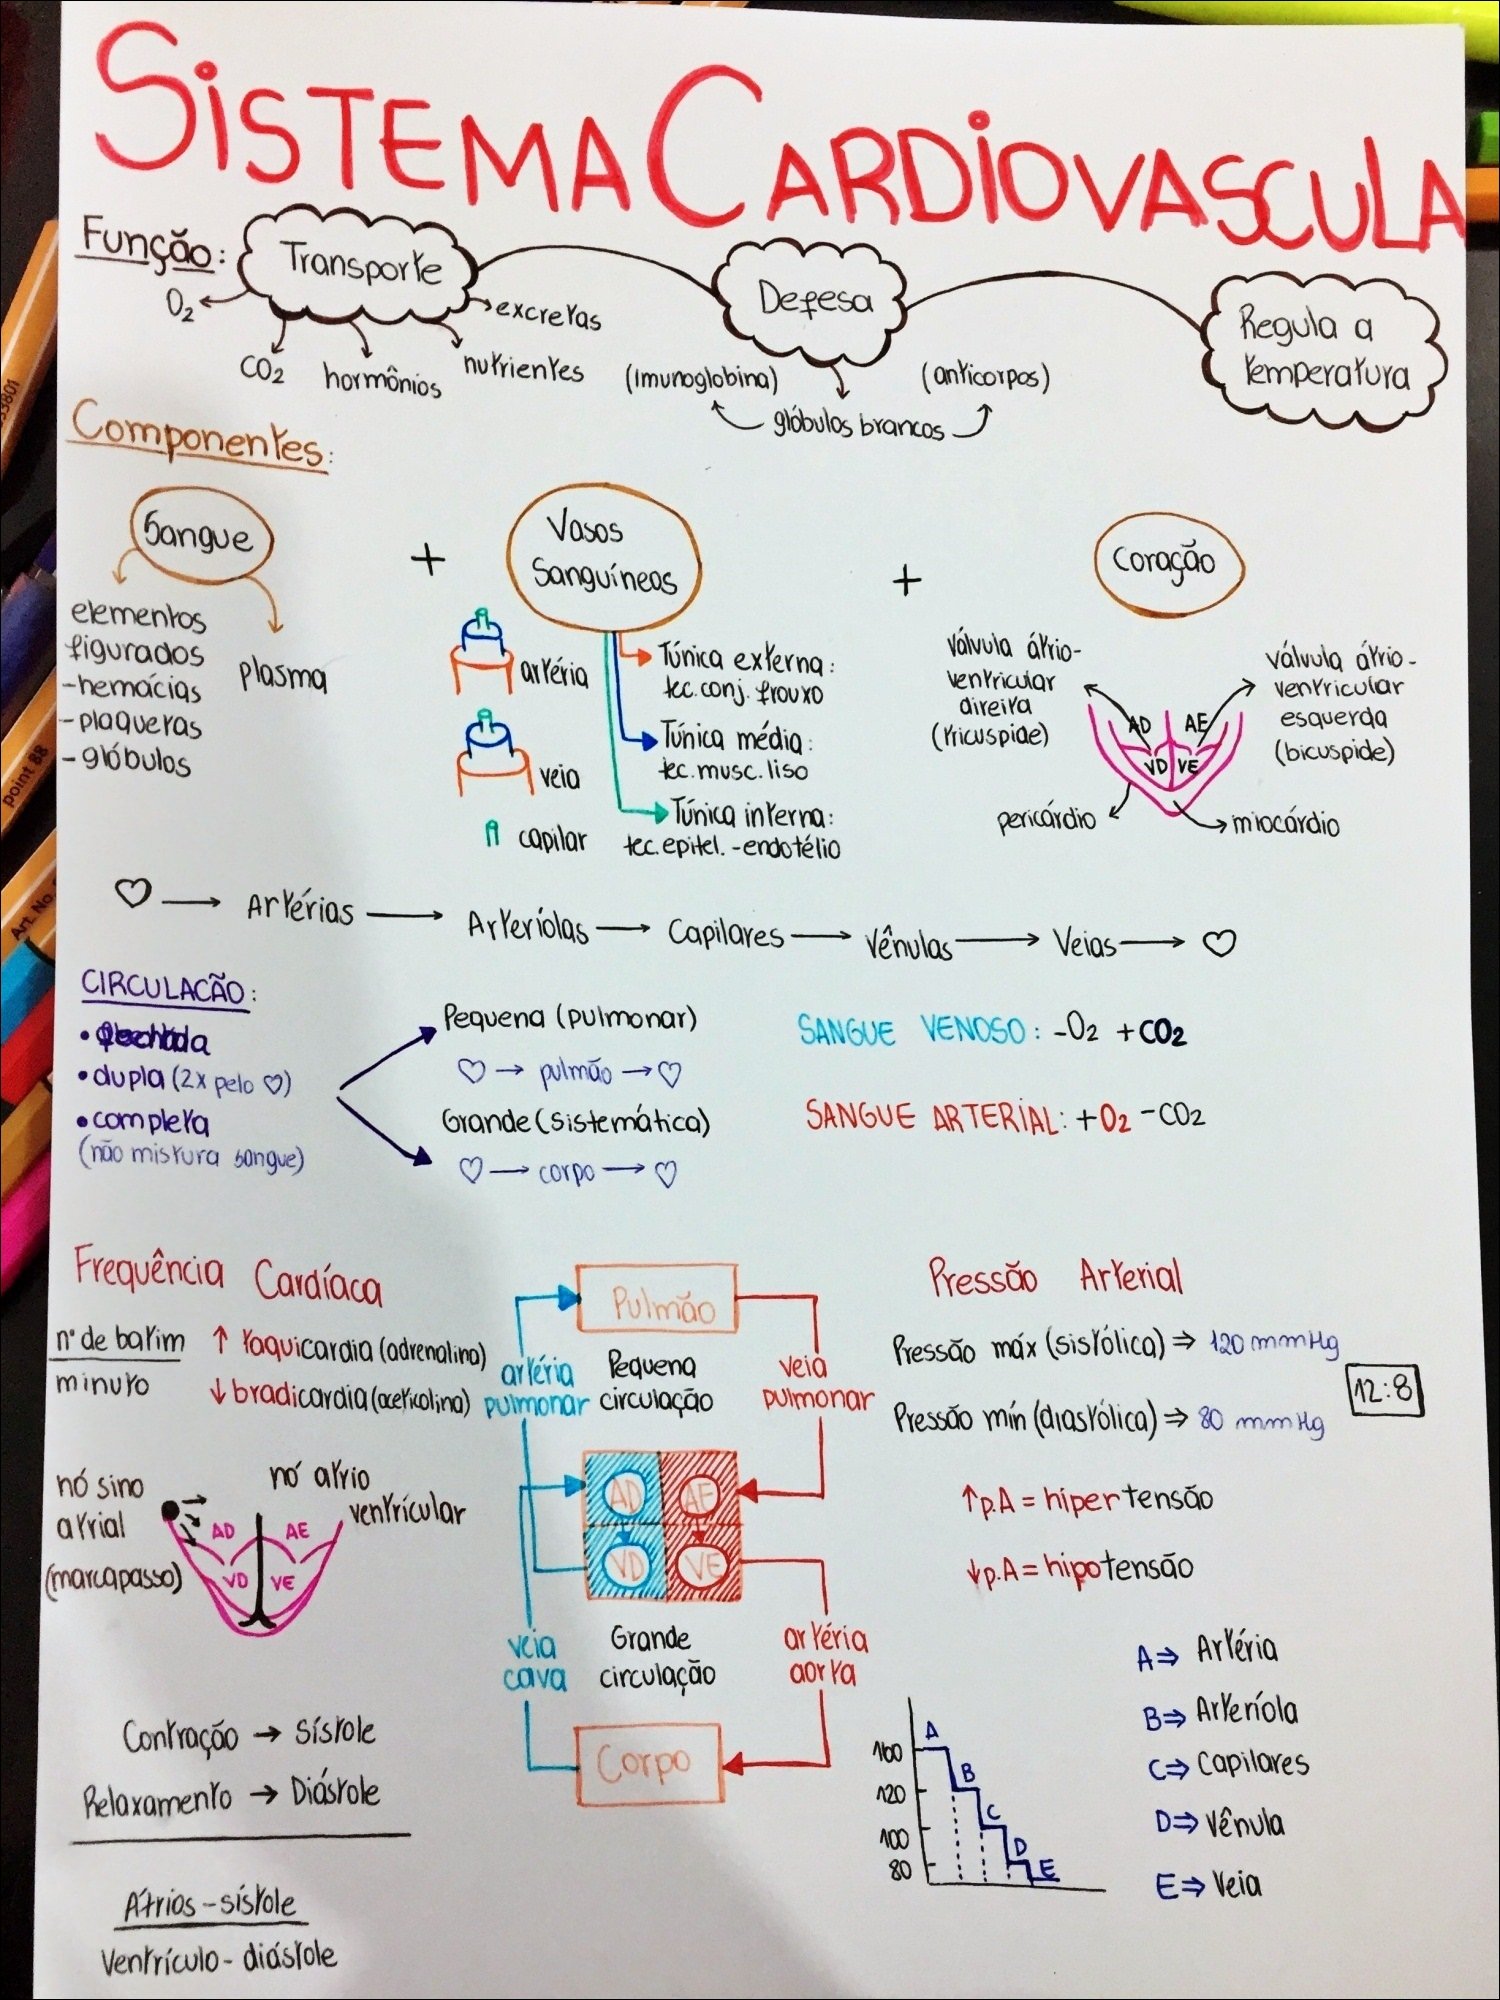 SISTEMA CARDIOVASCULA
Função:
Transporte
Defesa
Regula a
temperatura
O2
CO2
hormônios
nutrientes
excretas
(imunoglobina)
(anticorpos)
glóbulos brancos
Componentes:
Sangue
+
Vasos
Sanguíneos
+
Coração
elementos
figurados
-hemácias
-plaquetas
-glóbulos
plasma
artéria
veia
capilar
Túnica externa:
tec.conj. frouxo
Túnica média:
tec.musc.liso
Túnica interna:
tec.epitel.-endotélio
válvula átrio-
ventricular
direita
(tricuspide)
válvula átrio-
ventricular
esquerda
(bicuspide)
AD
AE
VD
VE
pericárdio
miocárdio
♡ → Artérias → Arteríolas → Capilares → Vênulas → Veias → ♡
CIRCULACÃO:
• dupla (2x pelo ♡)
• completa
(não mistura sangue)
Pequena (pulmonar)
♡ → pulmão → ♡
Grande (sistemática)
♡ → corpo → ♡
SANGUE VENOSO: -O2 +CO2
SANGUE ARTERIAL: +O2 -CO2
Frequência Cardíaca
nº de batim
minuto
↑ taquicardia (adrenalina)
↓ bradicardia (aceticolina)
nó sino
atrial
(marcapasso)
nó atrio
ventrícular
AD
AE
VD
VE
Contração → Sístole
Relaxamento → Diástole
Átrios - sístole
Ventrículo - diástole
Pulmão
artéria
pulmonar
Pequena
circulação
veia
pulmonar
AD
AE
VD
VE
veia
cava
Grande
circulação
artéria
aorta
Corpo
Pressão Arterial
Pressão máx (sistólica) ⇒ 120 mmHg
Pressão mín (diastólica) ⇒ 80 mmHg
12:8
↑p.A = hipertensão
↓p.A = hipotensão
160
120
100
80
A
B
C
D
E
A ⇒ Artéria
B ⇒ Arteríola
C ⇒ Capilares
D ⇒ Vênula
E ⇒ Veia
point 88
Art. No.